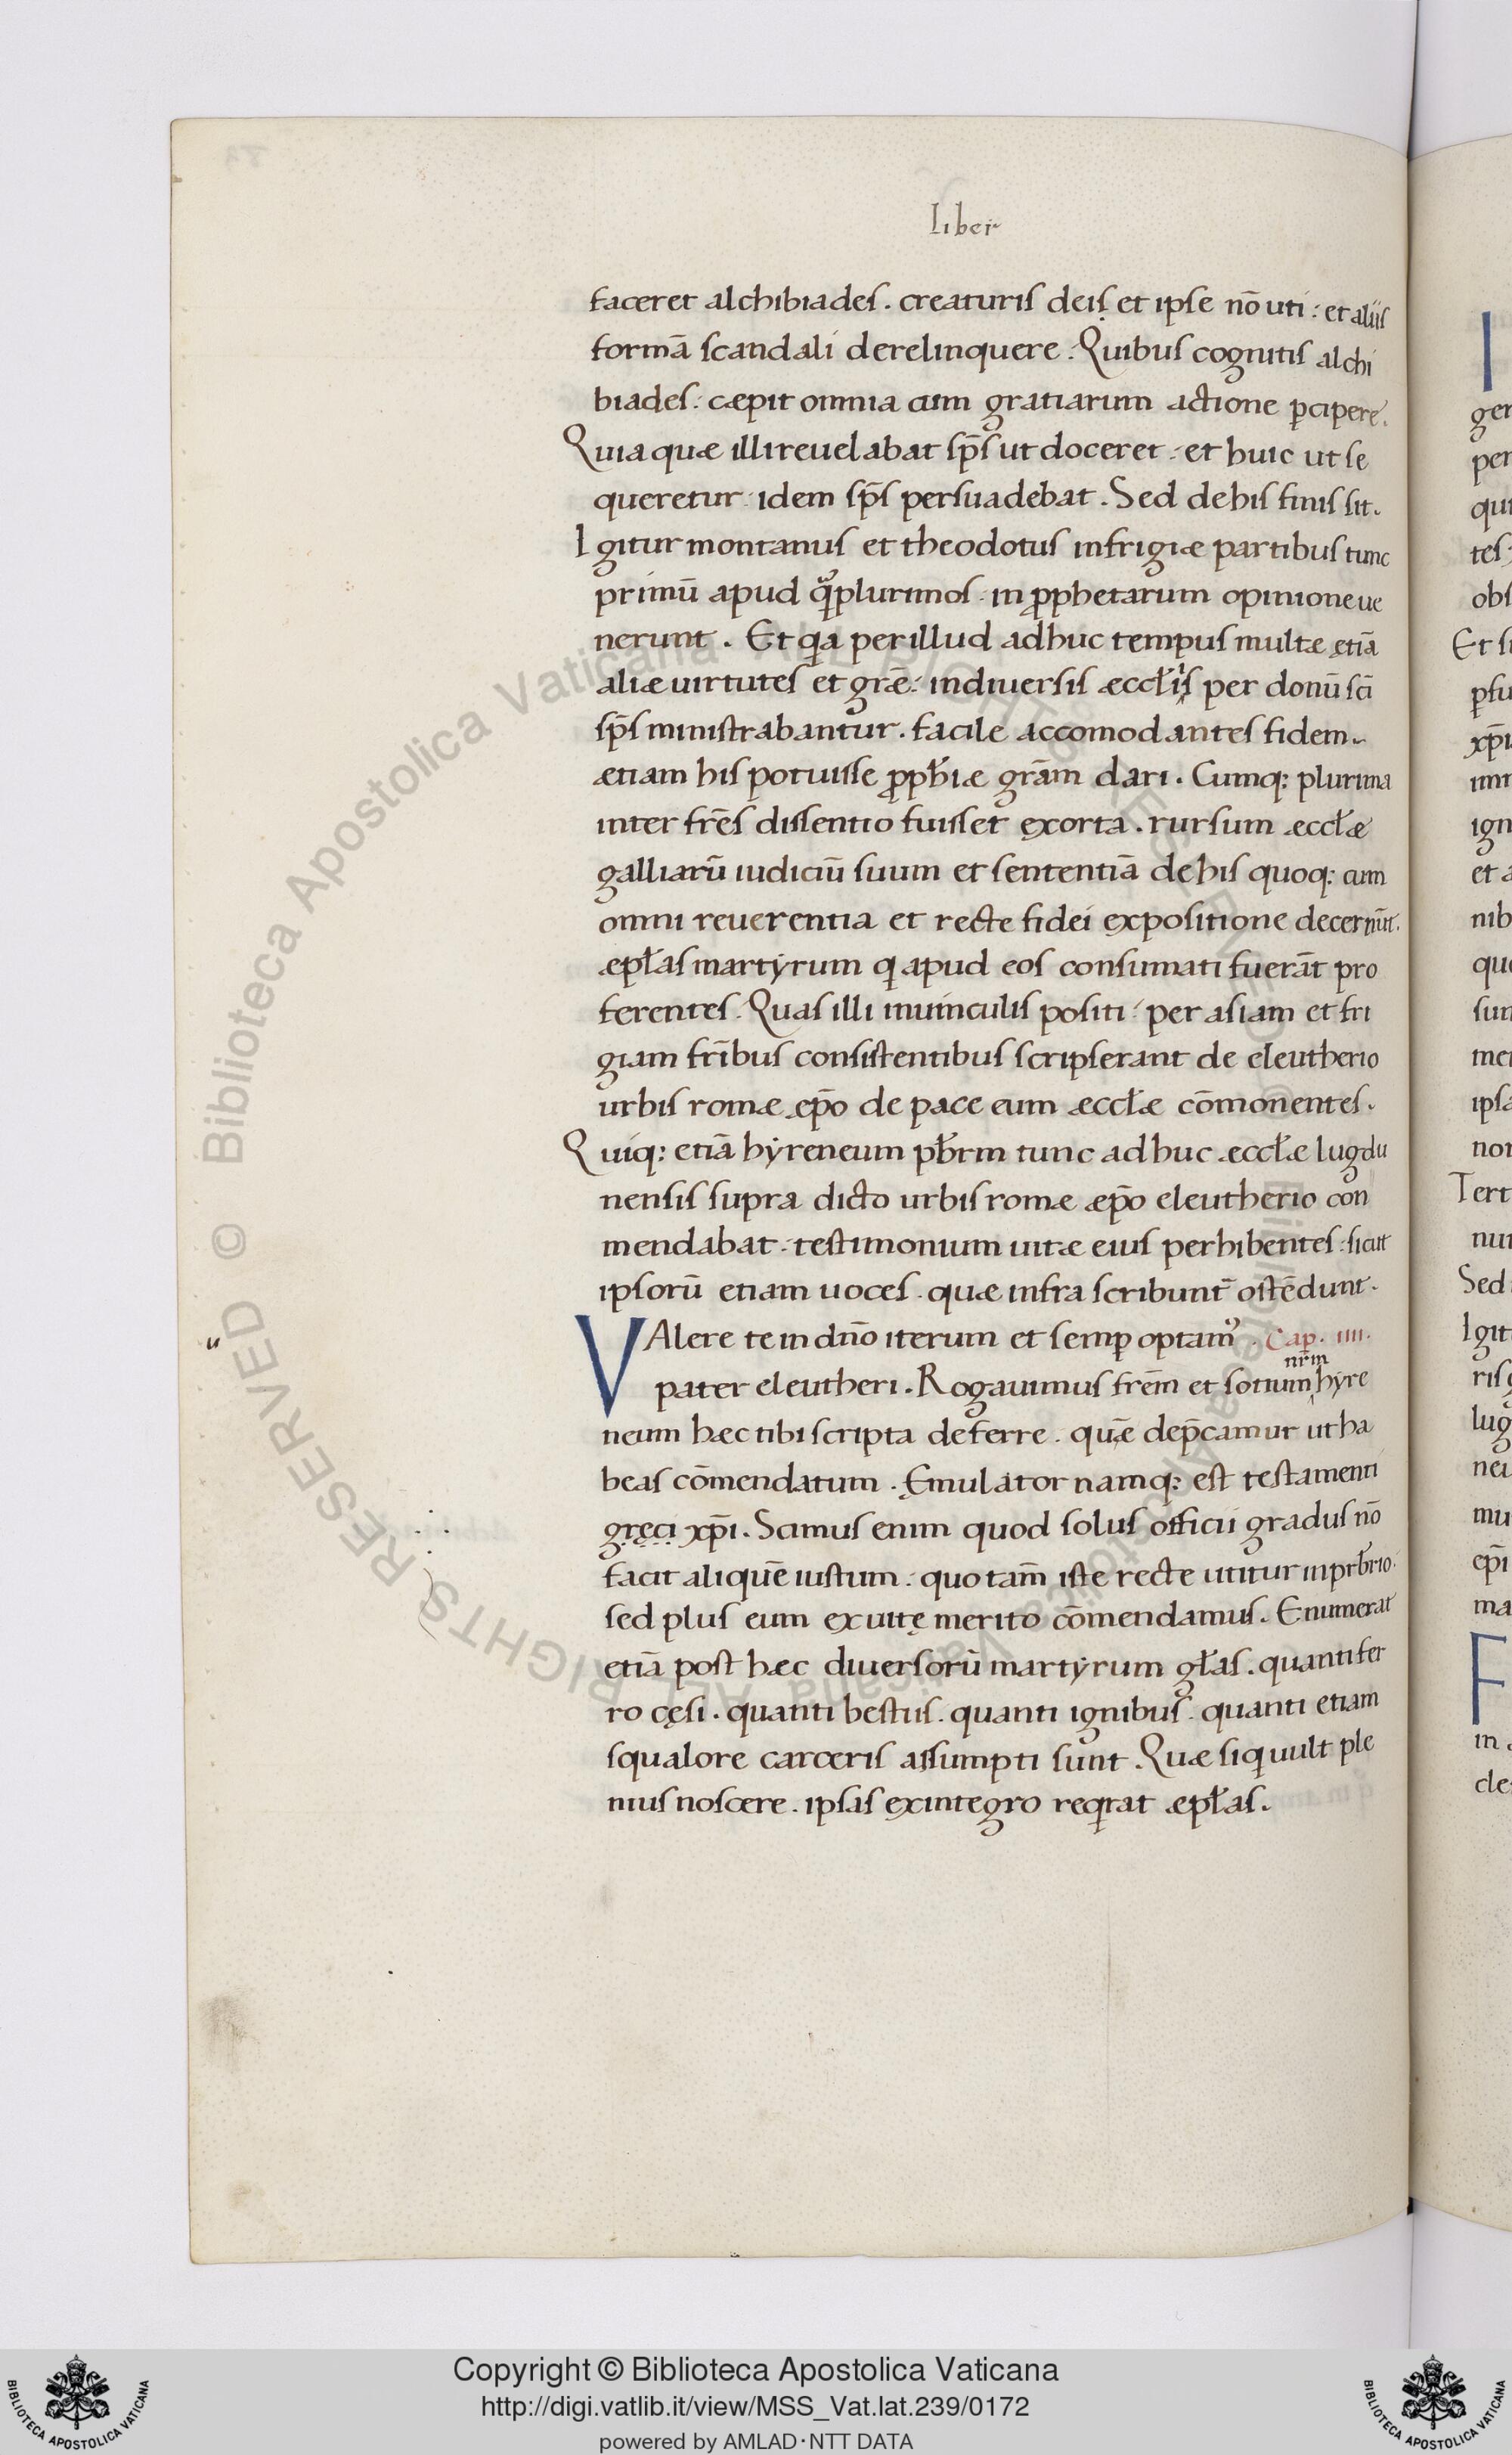 liber
faceret alchibiades . creaturis deis et ipse nō uti : et aliis
formā scandali derelinquere . Quibus cognitis alchi
biades : cæpit omnia cum gratiarum actione ꝑcipere .
Quia quæ illi reuelabat sp̄s ut doceret : et huic ut se
queretur : idem sp̄s persuadebat . Sed de his finis sit .
Igitur montanus et theodotus in frigiæ partibus tunc
primū apud qͣ̄plurimos : in ꝓphetarum opinione ue
nerunt . Et qa per illud adhuc tempus multæ etiā
aliæ uirtutes et grē : in diuersis æccłiis per donū sci
sp̄s ministrabantur . facile accomodantes fidem .
ætiam his potuisse ꝓpħiæ grām dari . Cumq; plurima
inter frēs dissentio fuisset exorta . rursum æccłæ
galliarū iudiciū suum et sententiā de his quoq; cum
omni reuerentia et recte fidei expositione decernūt .
æpłas martyrum q apud eos consumati fuerāt pro
ferentes . Quas illi in uinculis positi : per asiam et fri
giam frībus consistentibus scripserant de eleutherio
urbis romæ æp̄o de pace eum æccłæ cōmonentes .
Quiq; etiā hyreneum pƀrm tunc adhuc æccłæ lugdu
nensis supra dicto urbis romæ æp̄o eleutherio con
mendabat : testimonium uitæ eius perhibentes : sicut
ipsorū etiam uoces . quæ infra scribunt̄ ostēdunt .
u
VAlere te in dn̄o iterum et semꝑ optamꝰ . Cap . iiii .
pater eleutheri . Rogauimus frēm et sotium nr̄m hyre
neum hæc tibi scripta deferre . quē dep̄camur ut ha
beas cōmendatum . Emulator namq; est testamenti
gręci xp̄i . Scimus enim quod solus officii gradus nō
facit aliquē iustum : quo tam̄ iste recte utitur in prƀrio .
sed plus eum ex uitę merito cōmendamus . Enumerat
etiā post hæc diuersorū martyrum głas . quanti fer
ro cęsi . quanti bestiis . quanti ignibus . quanti etiam
squalore carceris assumpti sunt . Quæ siq uult ple
nius noscere . ipsas ex integro reqrat æpłas .
Copyright © Biblioteca Apostolica Vaticana
http://digi.vatlib.it/view/MSS_Vat.lat.239/0172
powered by AMLAD·NTT DATA